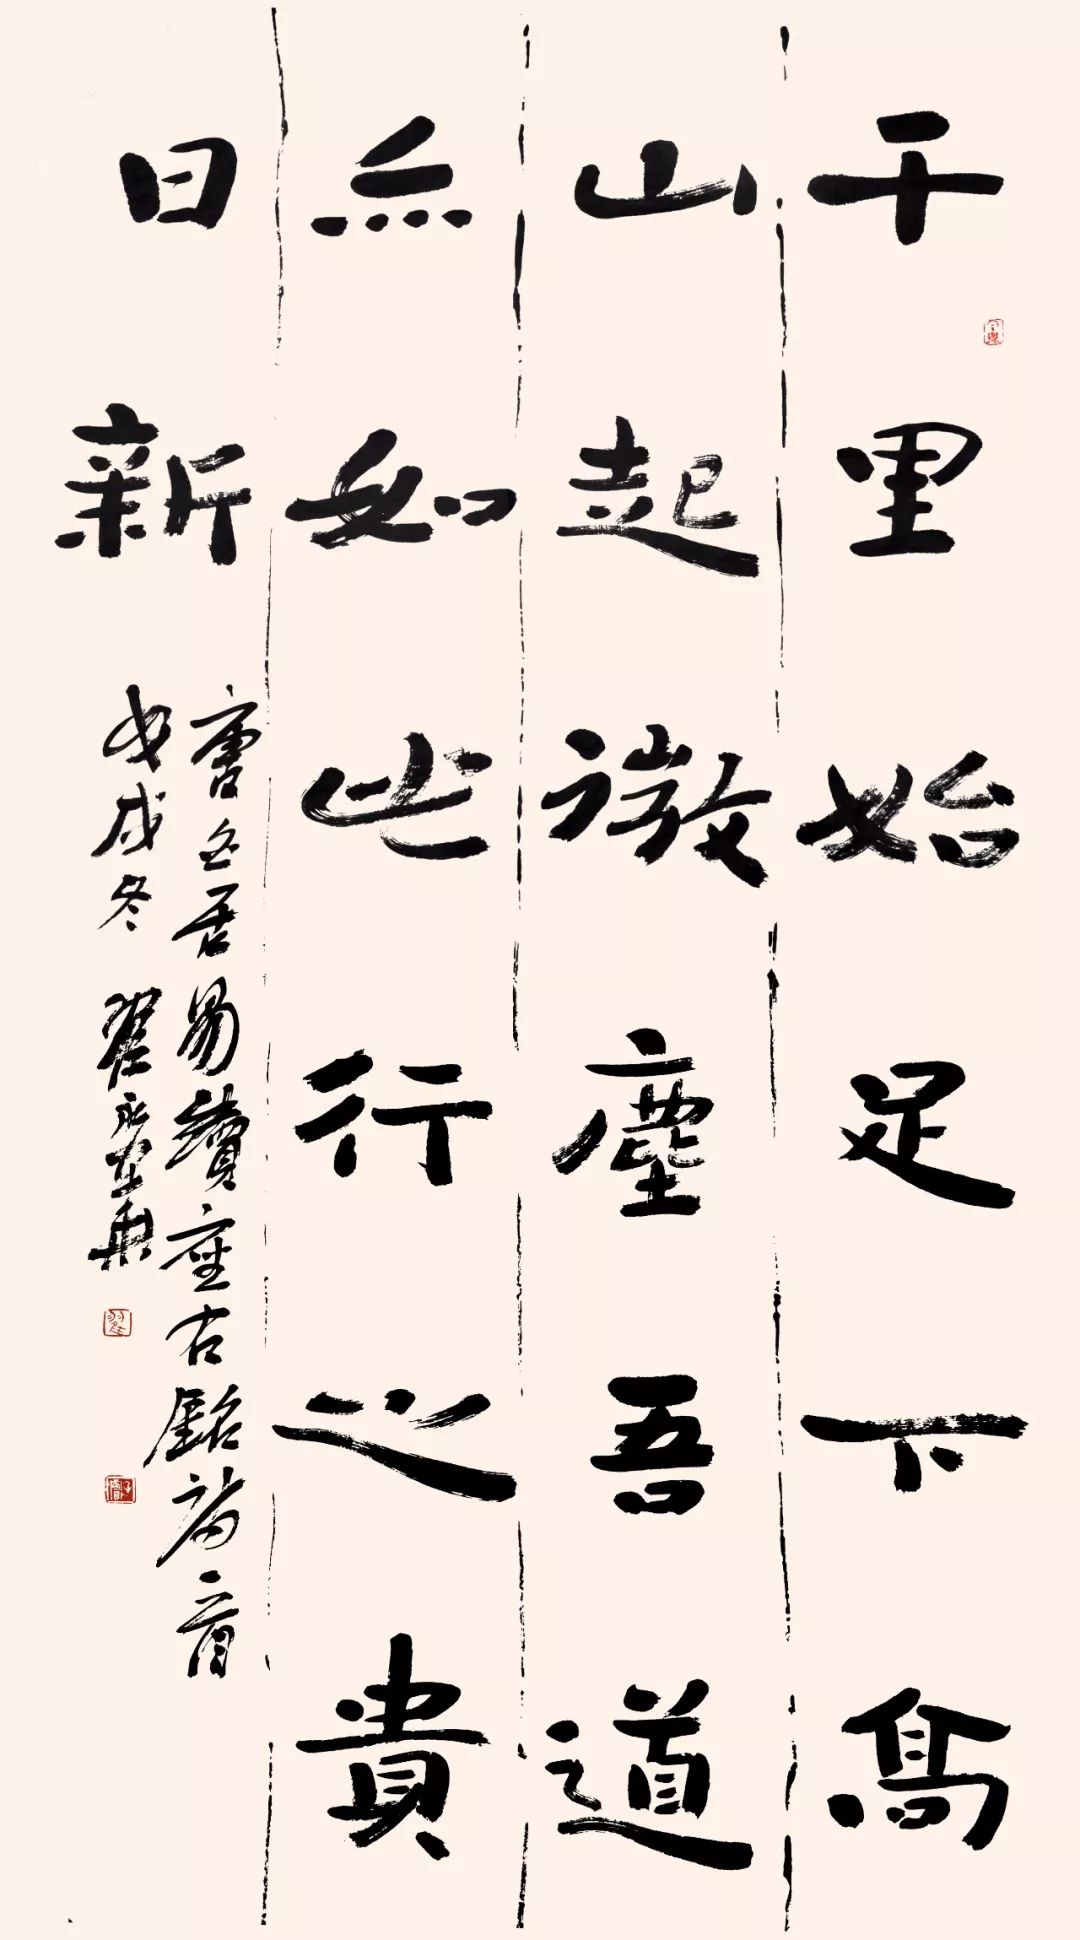 千里始足下高
山起微塵吾道
亦如此行之貴
日新
唐白居易續座右銘詩一首
戊戌冬 翟